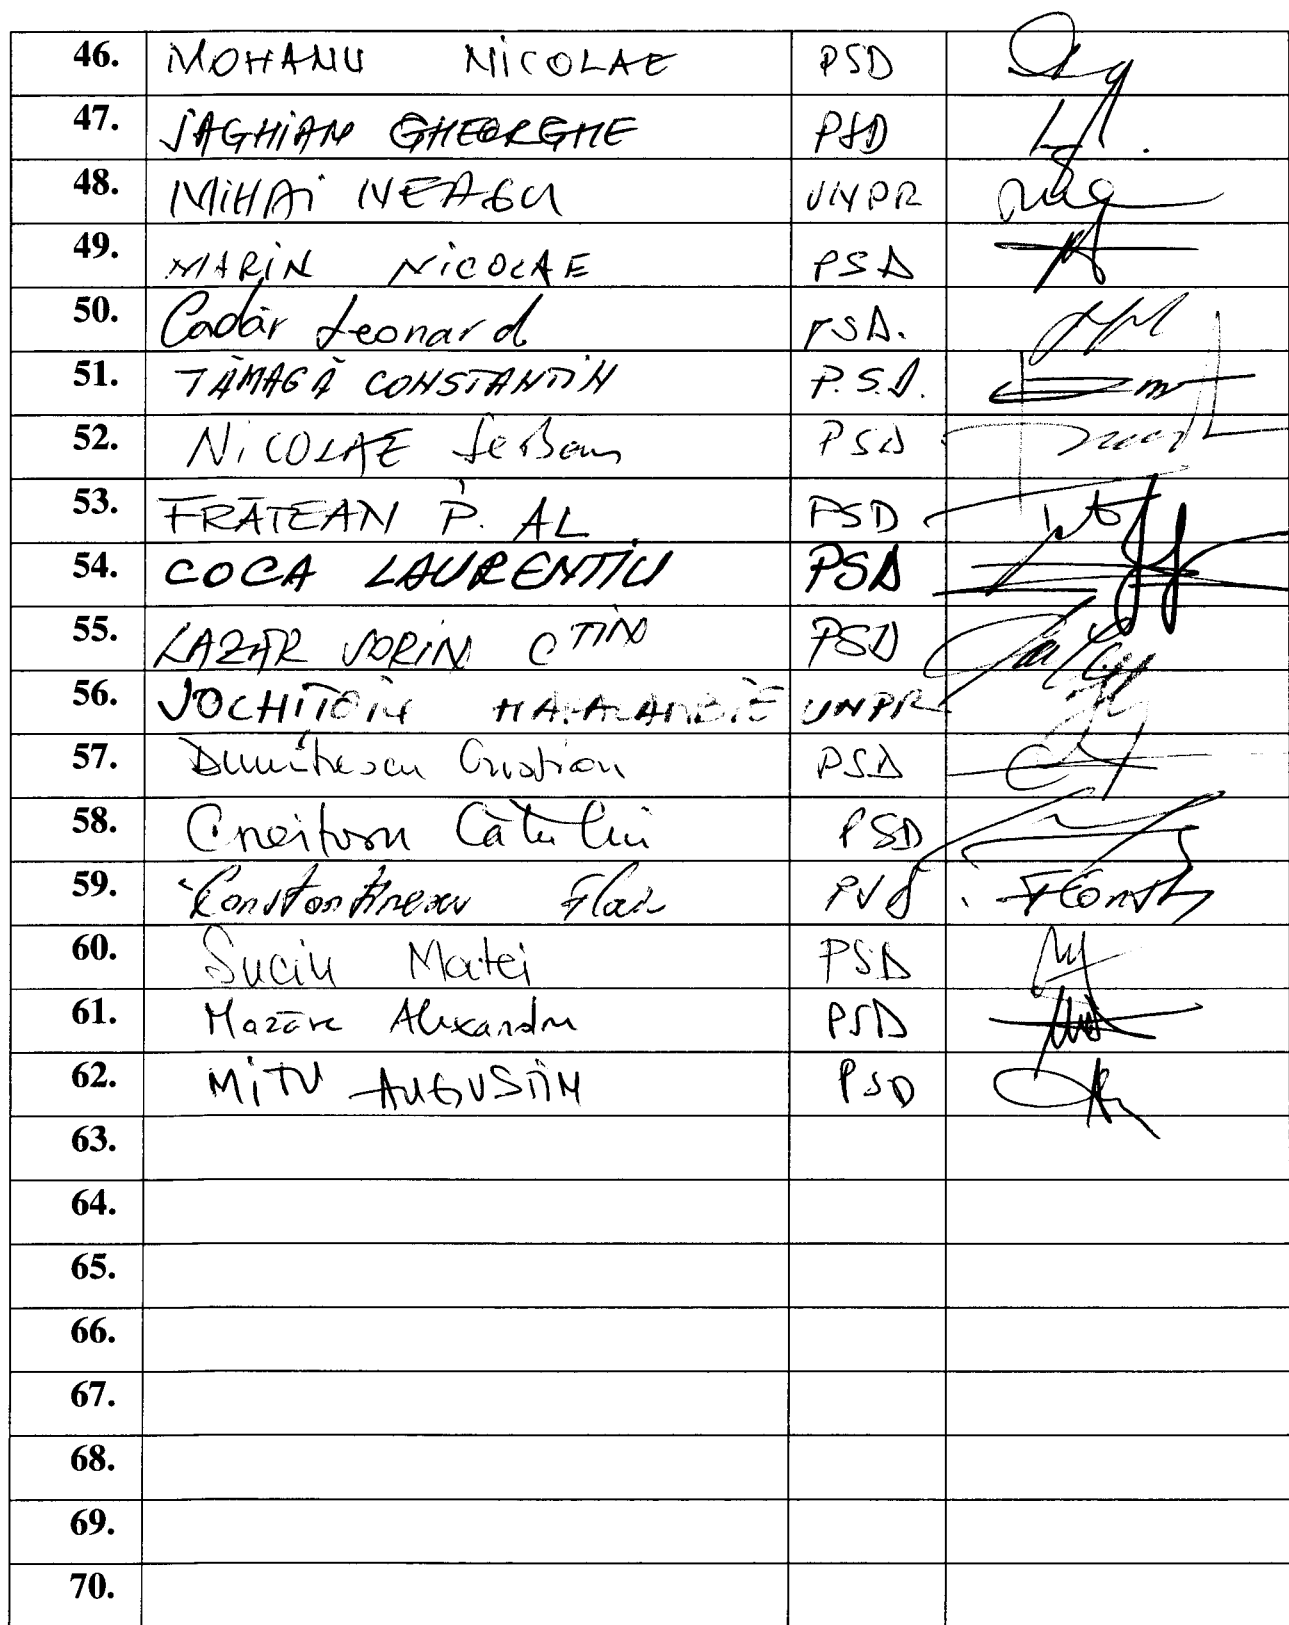 46. MOHANU NICOLAE PSD
47. SAGHIAN GHEORGHE PSD
48. MIHAI NEAGU UNPR
49. MARIN NICOLAE PSD
50. Cadăr Leonard PSD.
51. TĂMAGĂ CONSTANTIN P.S.D.
52. NICOLAE Șerban PSD
53. FRĂTEAN P. AL PSD
54. COCA LAURENȚIU PSD
55. LAZĂR SORIN CTIN PSD
56. VOCHIȚOIU HARALAMBIE UNPR
57. Dumitrescu Cristian PSD
58. Croitoru Cătălin PSD
59. Constantinescu
60. Suciu Matei PSD
61. Mazăre Alexandru PSD
62. MITU AUGUSTIN PSD
63.
64.
65.
66.
67.
68.
69.
70.